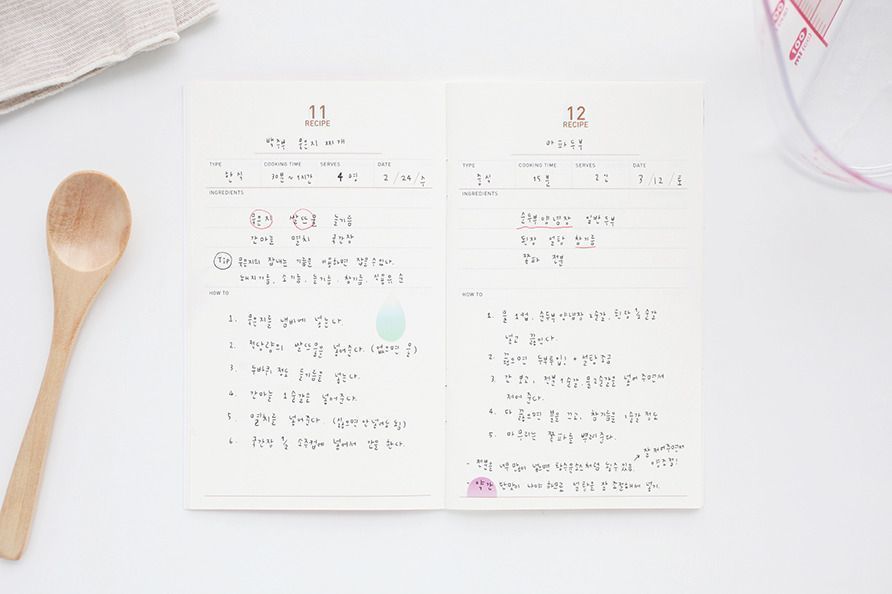 11
RECIPE
백주부 묵은지 찌개
TYPE COOKING TIME SERVES DATE
한식 30분~1시간 4명 2/24/수
INGREDIENTS
묵은지 쌀뜨물 들기름
간마늘 멸치 국간장
Tip 묵은지의 잡내는 기름을 이용하면 잡을 수 있다.
돼지기름, 소기름, 들기름, 참기름, 식용유 순
HOW TO
1. 묵은지를 냄비에 넣는다.
2. 적당량의 쌀뜨물을 넣어준다. (없으면 물)
3. 두바퀴 정도 들기름을 넣는다.
4. 간마늘 1숟갈을 넣어준다.
5. 멸치를 넣어준다. (싫으면 안 넣어도 됨)
6. 국간장 ⅓ 소주컵에 넣어서 간을 한다.
12
RECIPE
마파두부
TYPE COOKING TIME SERVES DATE
중식 15분 2인 3/12/토
INGREDIENTS
순두부양념장 일반두부
된장 설탕 참기름
쪽파 전분
HOW TO
1. 물 1컵, 순두부양념장 2숟갈, 된장 숟갈
넣고 끓인다.
2. 끓으면 두부투입! + 설탕 조금
3. 간 보고, 전분 1숟갈, 물 2숟갈을 넣어 주면서
저어준다.
4. 다 끓으면 불을 끄고, 참기름을 1숟갈 정도
5. 마무리는 쪽파를 뿌려준다.
잘 저어주면서
양조절!
- 전분을 너무 많이 넣으면 탕수육소스처럼 될 수 있음
- 약간 단맛이 나야 하므로 설탕을 잘 조절해서 넣기.
100
ml(cc)
100